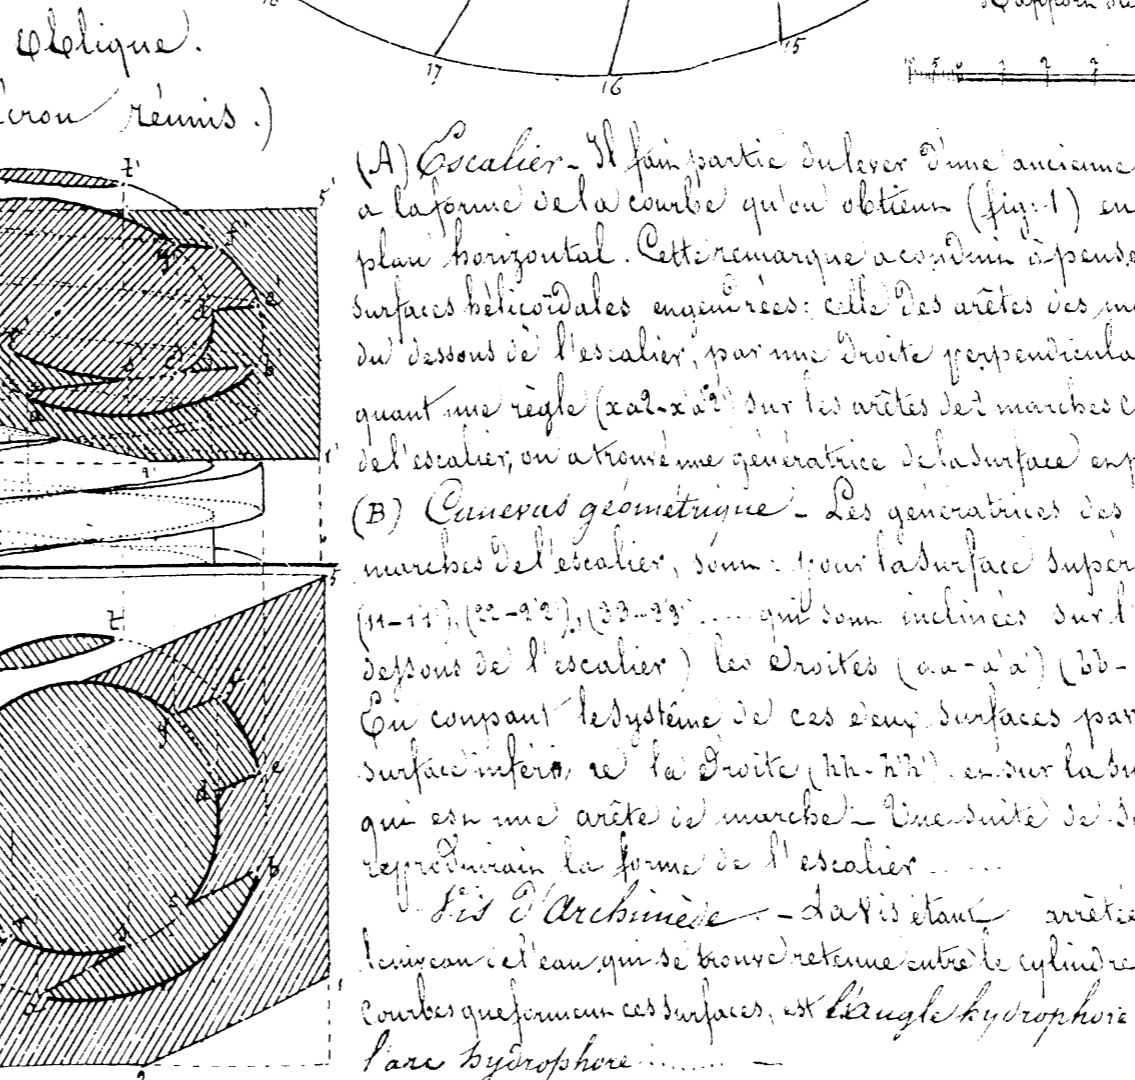 oblique.
écrou réunis.)
17
16
15
(A) Escalier - Il fait partie du lever d'une ancienne
a la forme de la courbe qu'on obtient (fig: 1) en
plan horizontal. Cette remarque a conduit à pense
surfaces hélicoïdales engendrées: celle des arêtes des
du dessous de l'escalier, par une droite perpendicula
quant une règle (xa2-x'a'2') sur les arêtes de 2 marches
de l'escalier, on a trouvé une génératrice de la surface en
(B) Canevas géométrique - Les génératrices des
marches de l'escalier, sont: pour la surface supér
(11-1'1'), (22-2'2'), (33-3'3' .... qui sont inclinées sur l'
dessous de l'escalier) les droites (aa-a'a') (bb-
En coupant le système de ces deux surfaces par
surface inférieure la droite (hh-h'h') et sur la su
qui est une arête de marche - Une suite de
reproduirait la forme de l'escalier .....
Vis d'Archimède - La vis étant arrêtée
le niveau de l'eau, qui se trouve retenue entre le cylindre
courbes que forment ces surfaces, est l'angle hydrophore
l'arc hydrophore ........ -